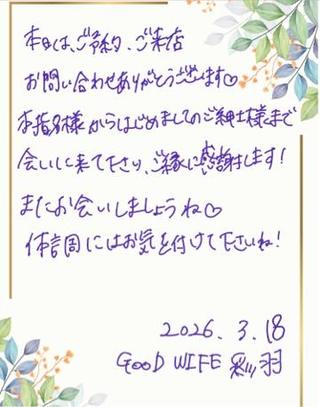 本日は、ご予約、ご来店
お問い合わせありがとうございます♡
本指名様からはじめましてのご紳士様まで
会いに来て下さり、ご縁に感謝します！
またお会いしましょうね♡
体調にはお気を付けて下さいね！
2026.3.18
GOOD WIFE 彩羽